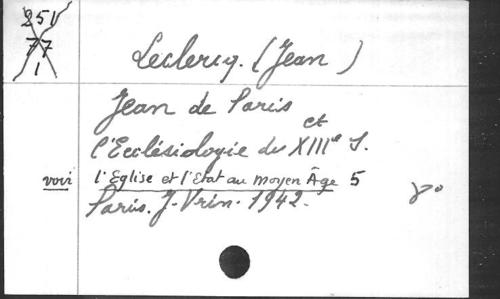 251
77
1
Leclercq. (Jean)
Jean de Paris
et
l'Ecclésiologie du XIIIe S.
voir l'Eglise et l'Etat au Moyen Âge 5
Paris. J. Vrin. 1942. 8°